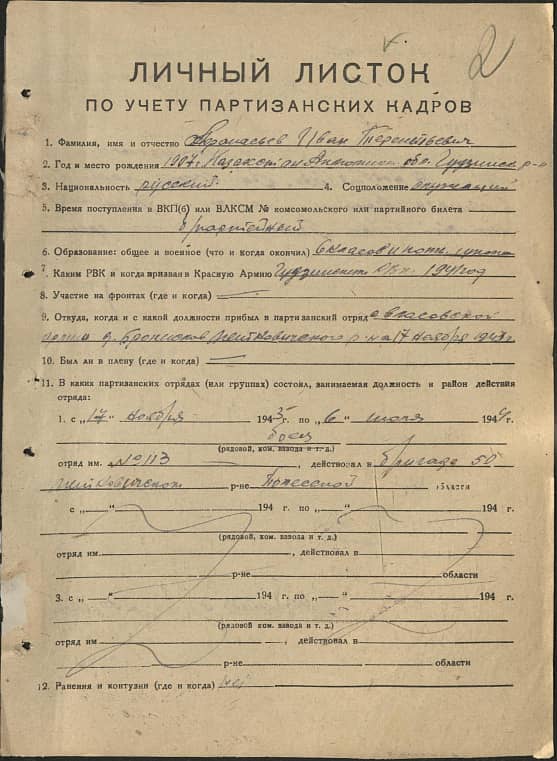 2
ЛИЧНЫЙ ЛИСТОК
ПО УЧЕТУ ПАРТИЗАНСКИХ КАДРОВ
1. Фамилия, имя и отчество Афанасьев Иван Терентьевич
2. Год и место рождения 1907 г. Казахстан обл.
3. Национальность русский 4. Соцположение служащий
5. Время поступления в ВКП(б) или ВЛКСМ № комсомольского или партийного билета
б/партейный
6. Образование: общее и военное (что и когда окончил) 6 класов
7. Каким РВК и когда призван в Красную Армию 1941 год
8. Участие на фронтах (где и когда)
9. Откуда, когда и с какой должности прибыл в партизанский отряд с власовской
армии д. р-на 17 ноября 1943 г.
10. Был ли в плену (где и когда)
11. В каких партизанских отрядах (или группах) состоял, занимаемая должность и район действия
отряда:
1. с „17" ноября 1943 г. по „6" июля 1944 г.
боец
(рядовой, ком. взвода и т. д.)
отряд им. №113, действовал в бригаде 50
р-не Полесской области
с „—" 194 г. по „—" 194 г.
(рядовой, ком. взвода и т. д.)
отряд им. , действовал в
р-не области
3. с „—" 194 г. по „—" 194 г.
(рядовой, ком. взвода и т. д.)
отряд им. , действовал в
р-не области
12. Ранения и контузии (где и когда) нет